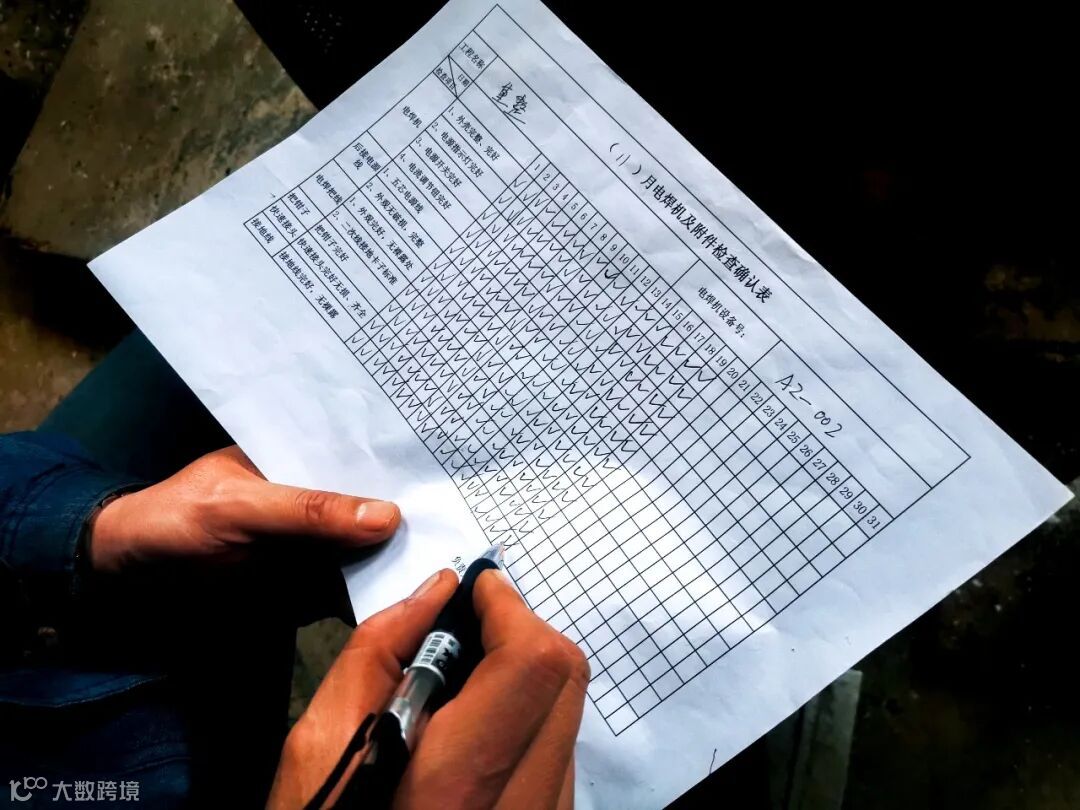 （二）月电焊机及附件检查确认表
工程名称 电焊机设备号： AZ-002
检查项目 日期 1 2 3 4 5 6 7 8 9 10 11 12 13 14 15 16 17 18 19 20 21 22 23 24 25 26 27 28 29 30 31
电焊机 1、外壳完整、完好
2、电源指示灯完好
3、电源开关完好
4、电流调节钮完好
后接电源线 1、五芯电源线
2、外观无破损，完整
电焊把线 1、外观完好，无裸露处
2、二次线接地卡子标准
把钳子 把钳子完好
快速接头 快速接头完好无损、齐全
接地线 接地线完好，无裸露
大数跨境